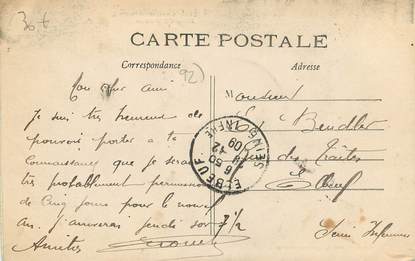 30f
CARTE POSTALE
Correspondance
Adresse
92)
Mon cher ami
Monsieur
Je suis très heureux de
Bendler
pouvoir porter à ta
connaissance que je serai
rue des Traites
très probablement permissionnaire
Elbeuf
de cinq jours pour le nouvel
an. J'arriverai jeudi soir 7 1/2
Seine Inférieure
Amitiés
ELBEUF
SEINE INFRE